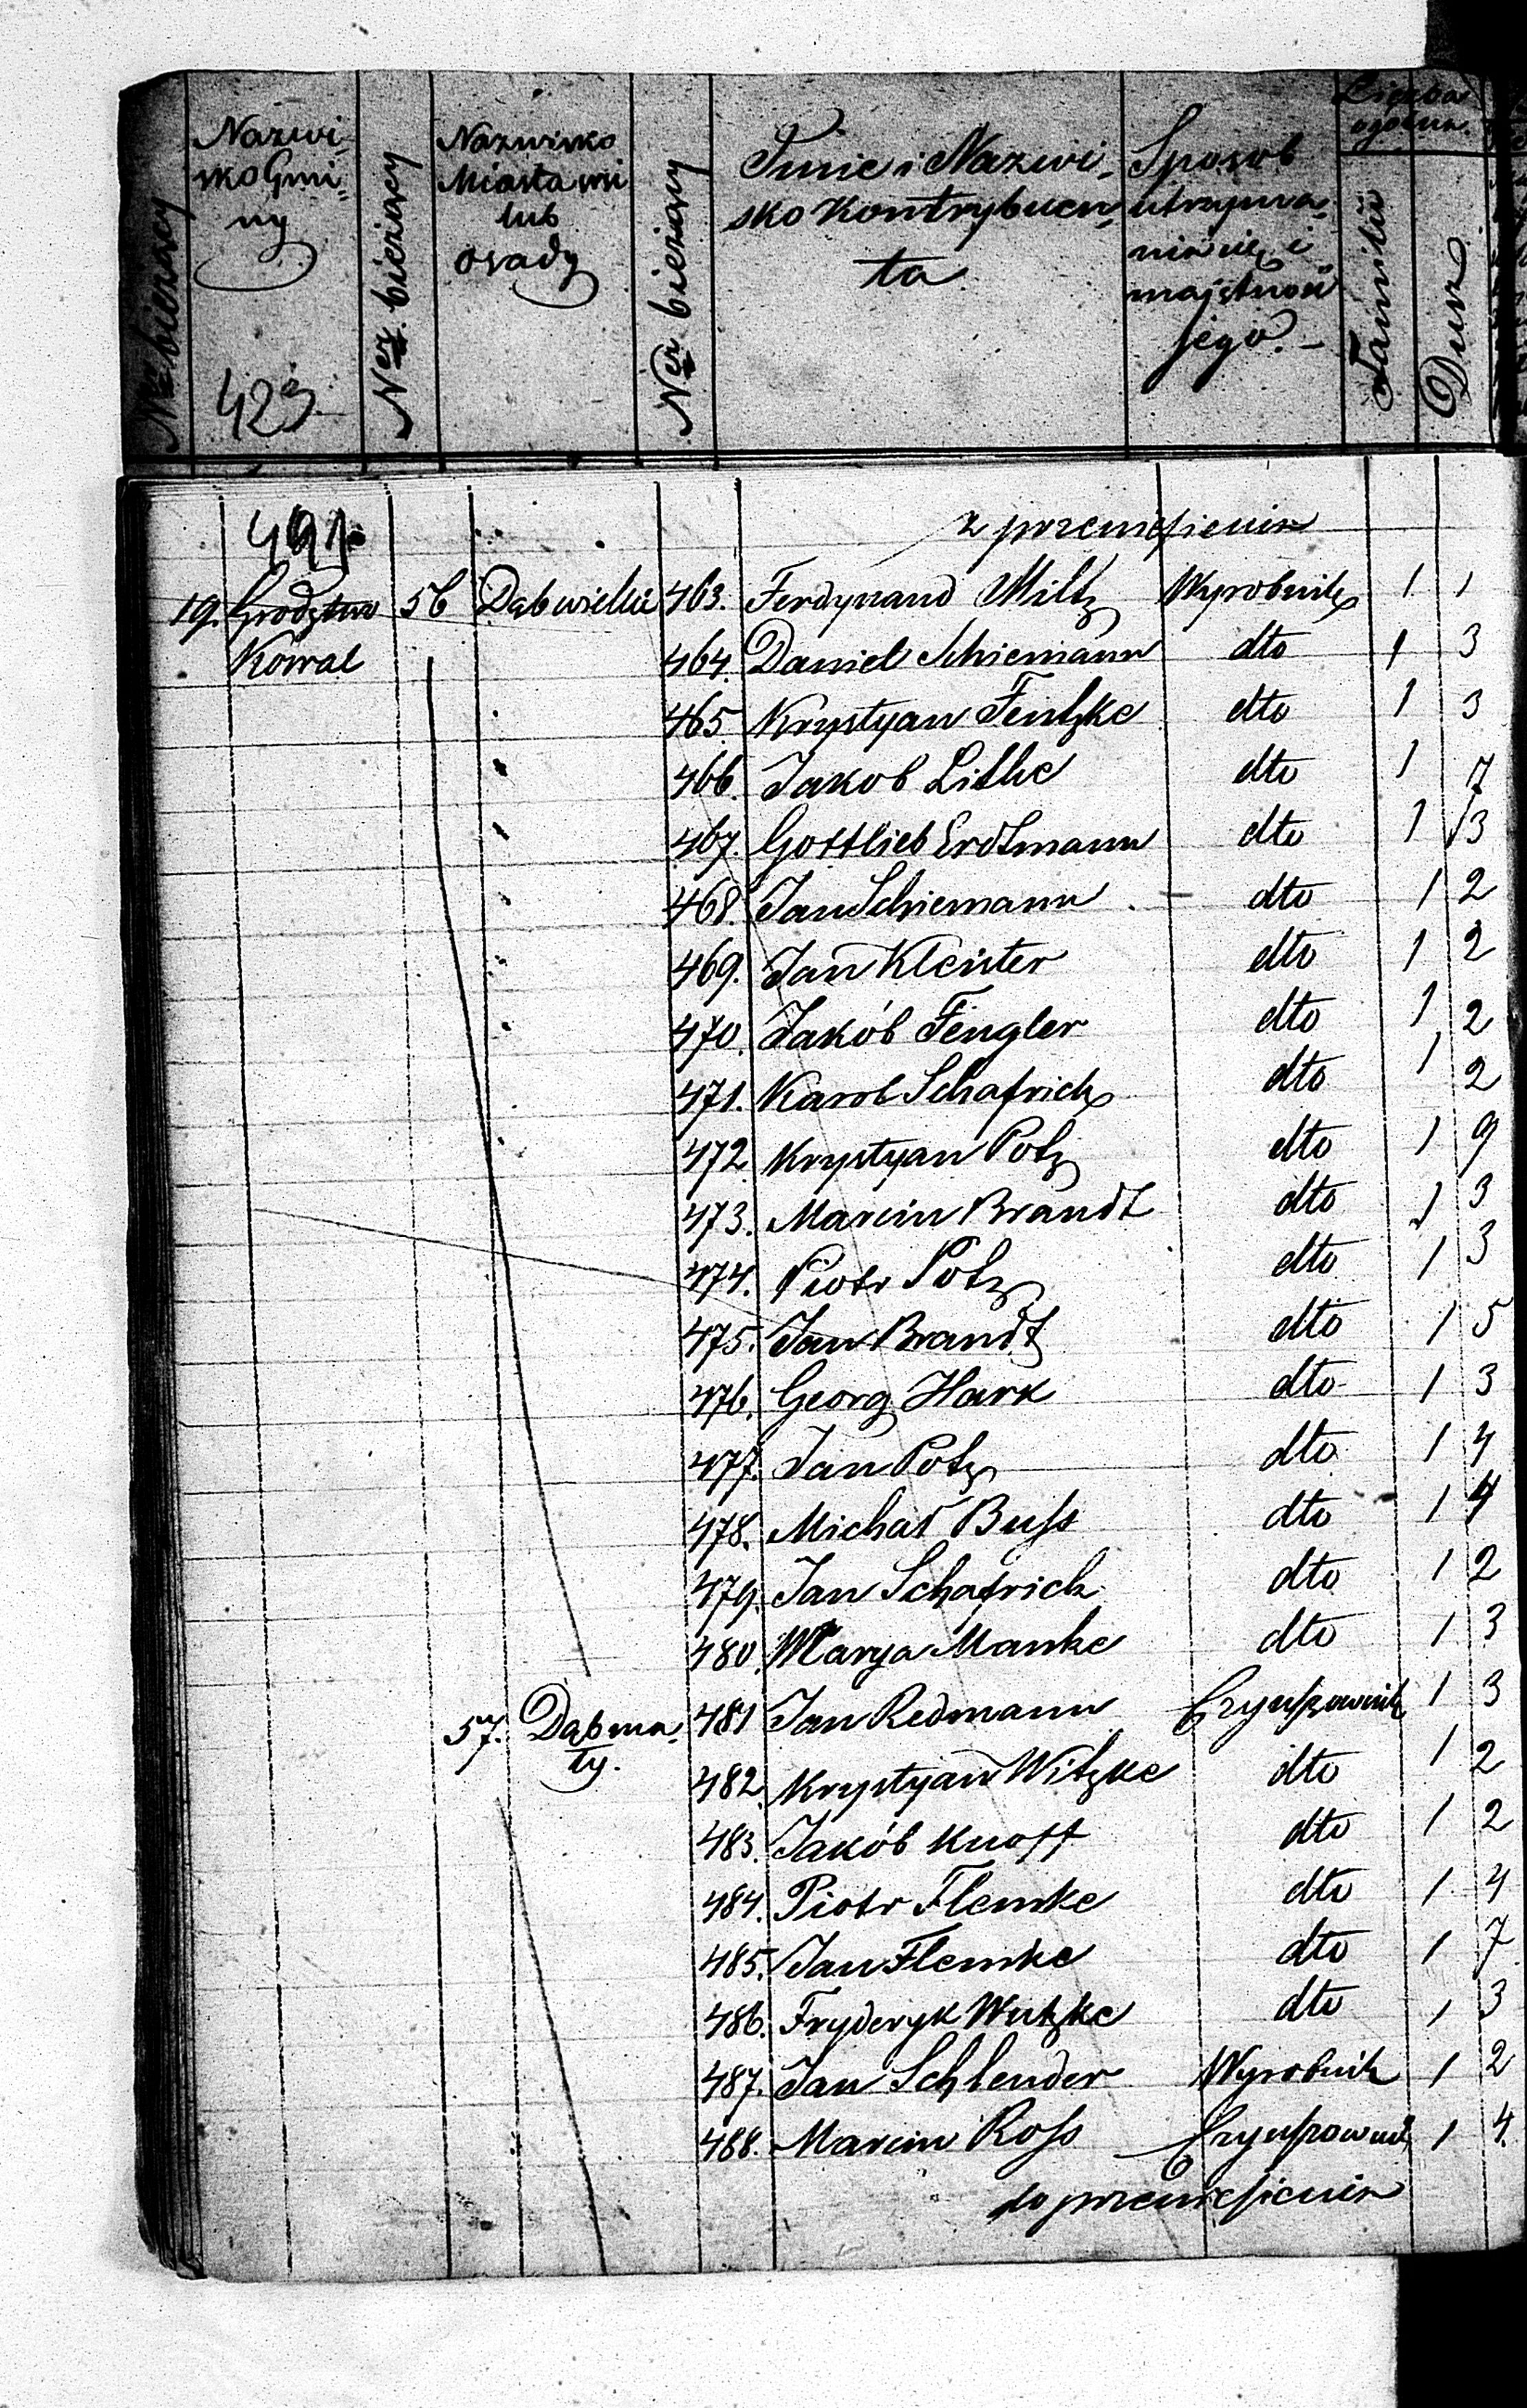 Nr bieżący
Nazwi-
sko Gmi-
ny
423
Nr bieżący
Nazwisko
Miasta wsi
lub
osady
Nr bieżący
Imie i Nazwi-
sko Kontrybuen-
ta
Sposob
utrzyma-
nia się i
majętnosci
jego. -
Liczba
ogólna.
Familii
Dusz
491.
z przeniesienia
19. Grodztwo 56 Dąb wielki 463. Ferdynand Miltz Wyrobnik 1 1
Kowal 464. Daniel Schiemann dto 1 3
465. Krystyan Fentzke dto 1 3
466. Jakob Litke dto 1 7
467. Gottlieb Erdtmann dto 1 3
468. Jan Schiemann dto 1 2
469. Jan Kleister dto 1 2
470. Jakób Fengler dto 1 2
471. Karol Schafrick dto 1 2
472. Krystyan Potz dto 1 9
473. Marcin Brandt dto 1 3
474. Piotr Potz dto 1 3
475. Jan Brandt dto 1 5
476. Georg Hark dto 1 3
477. Jan Potz dto 1 4
478. Michał Buss dto 1 4
479. Jan Schafrick dto 1 2
480. Marya Manke dto 1 3
57. Dąb ma- 481 Jan Redmann Czynszownik 1 3
ły. 482. Krystyan Witzke dto 1 2
483. Jakób Knoff dto 1 2
484. Piotr Flemke dto 1 4
485. Jan Flemke dto 1 7
486. Fryderyk Wutzke dto 1 3
487. Jan Schlender Wyrobnik 1 2
488. Marcin Ross Czynszownik 1 4.
do przeniesienia